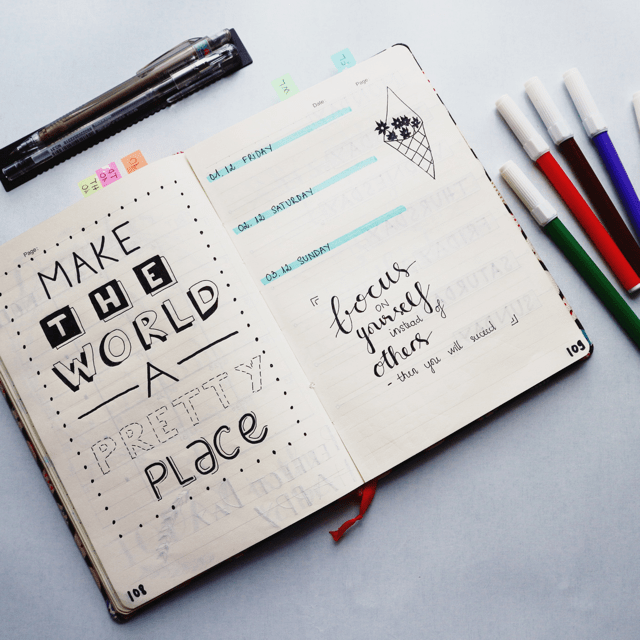 Page:
MAKE
THE
WORLD
A
PRETTY
PLACE
108
Date:
Page:
01.12 FRIDAY
02.12 SATURDAY
03.12 SUNDAY
focus
ON
yourself
instead of
others
- then you will succeed
109